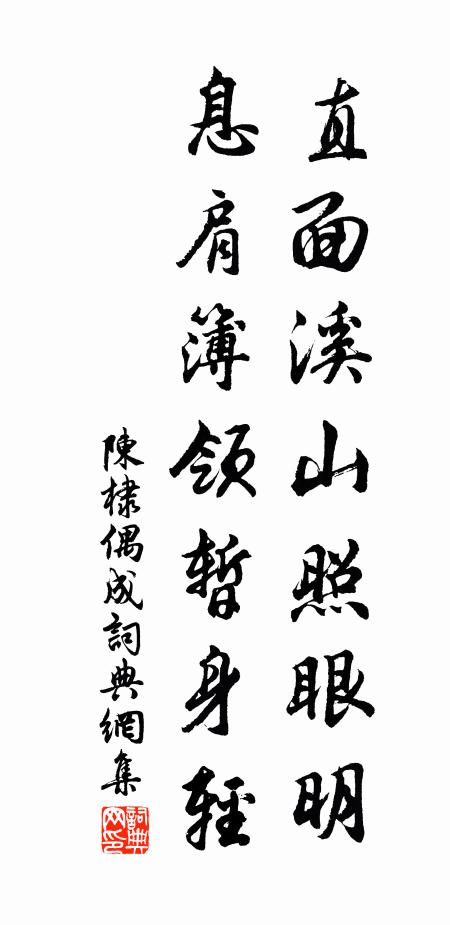 直面溪山照眼明
息肩簿領暫身輕
陳棣偶成詞典網集
詞典网印